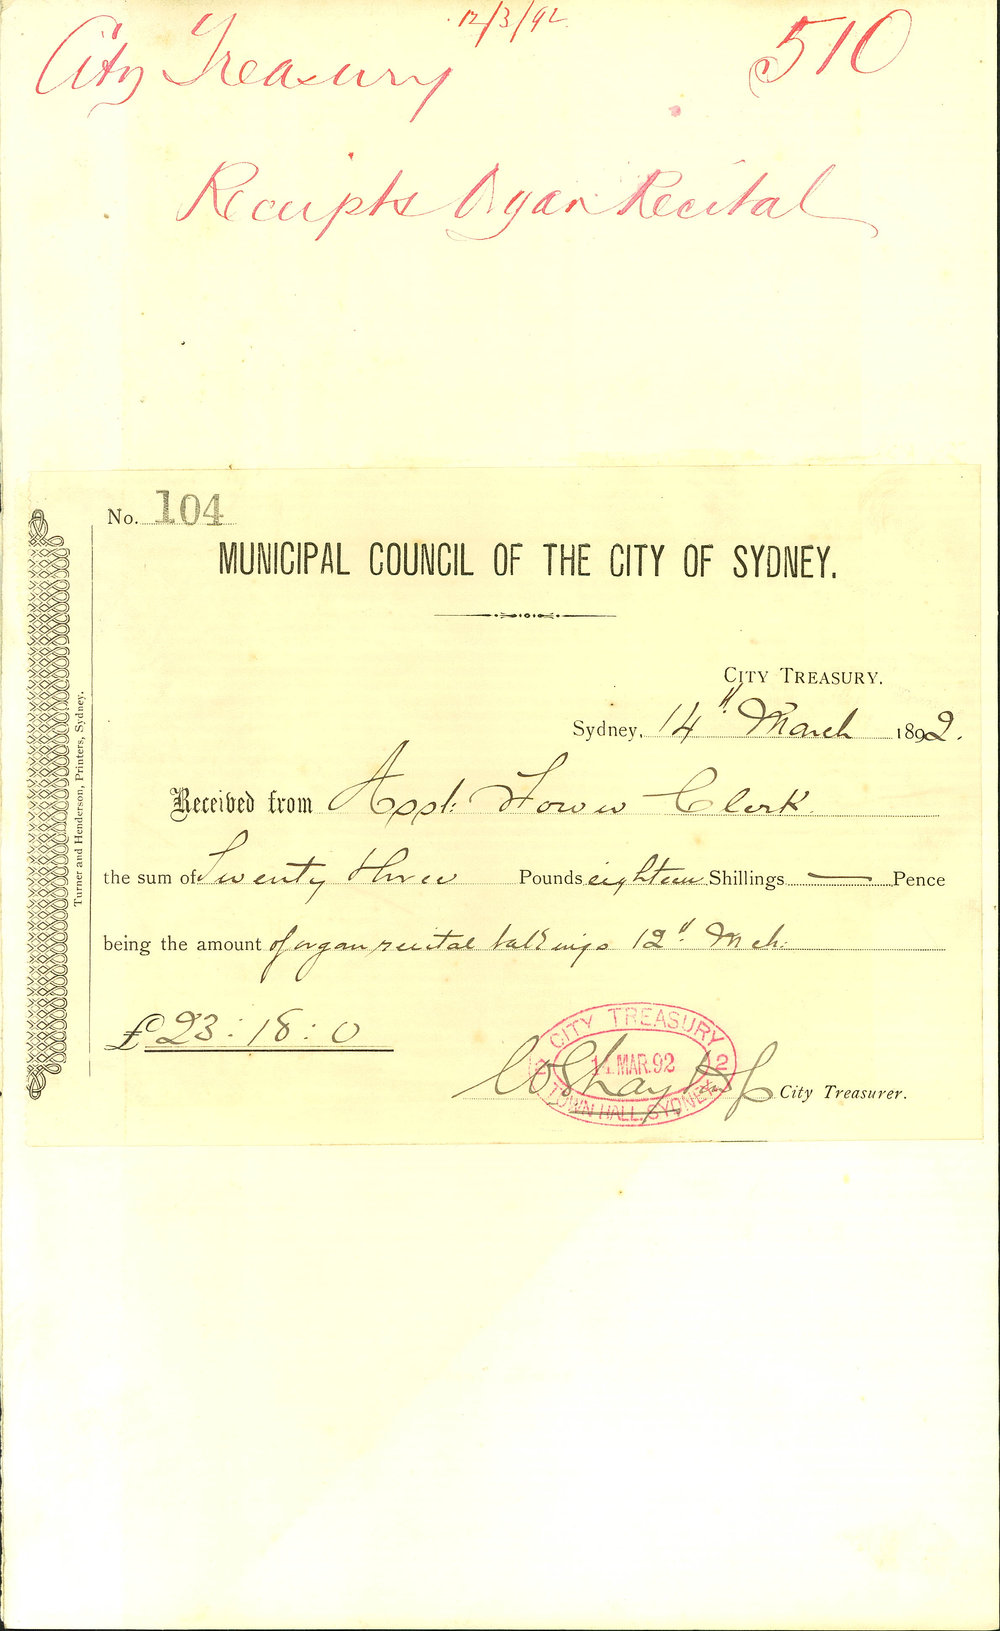 12/3/92
City Treasury 510
Receipts Organ Recital
No. 104
MUNICIPAL COUNCIL OF THE CITY OF SYDNEY.
CITY TREASURY.
Sydney, 14th March 1892.
Received from Asst: Town Clerk
the sum of Twenty three Pounds eighteen Shillings — Pence
being the amount of organ recital takings 12th Mch:
£23:18:0
CITY TREASURY
2 14 MAR.92 2
TOWN HALL, SYDNEY
City Treasurer.
Turner and Henderson, Printers, Sydney.